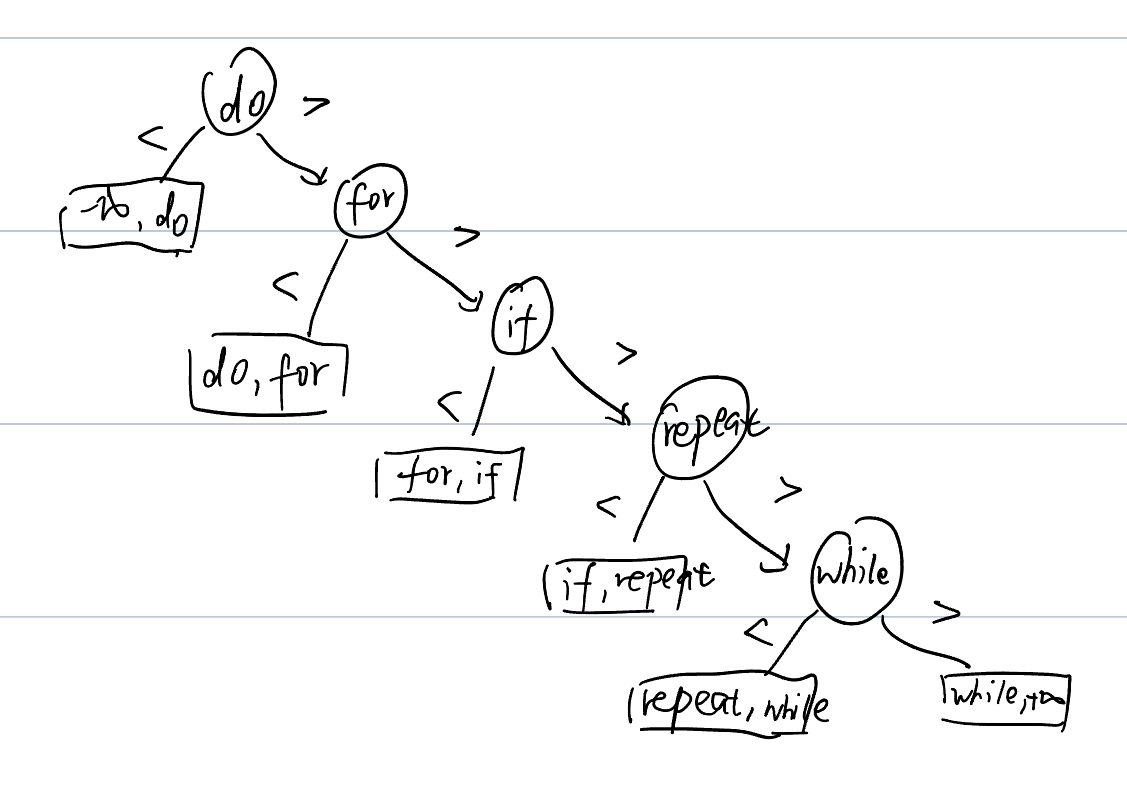 do
<
>
-∞, do
for
<
>
do, for
if
<
>
for, if
repeat
<
>
if, repeat
while
<
>
repeat, while
while, +∞